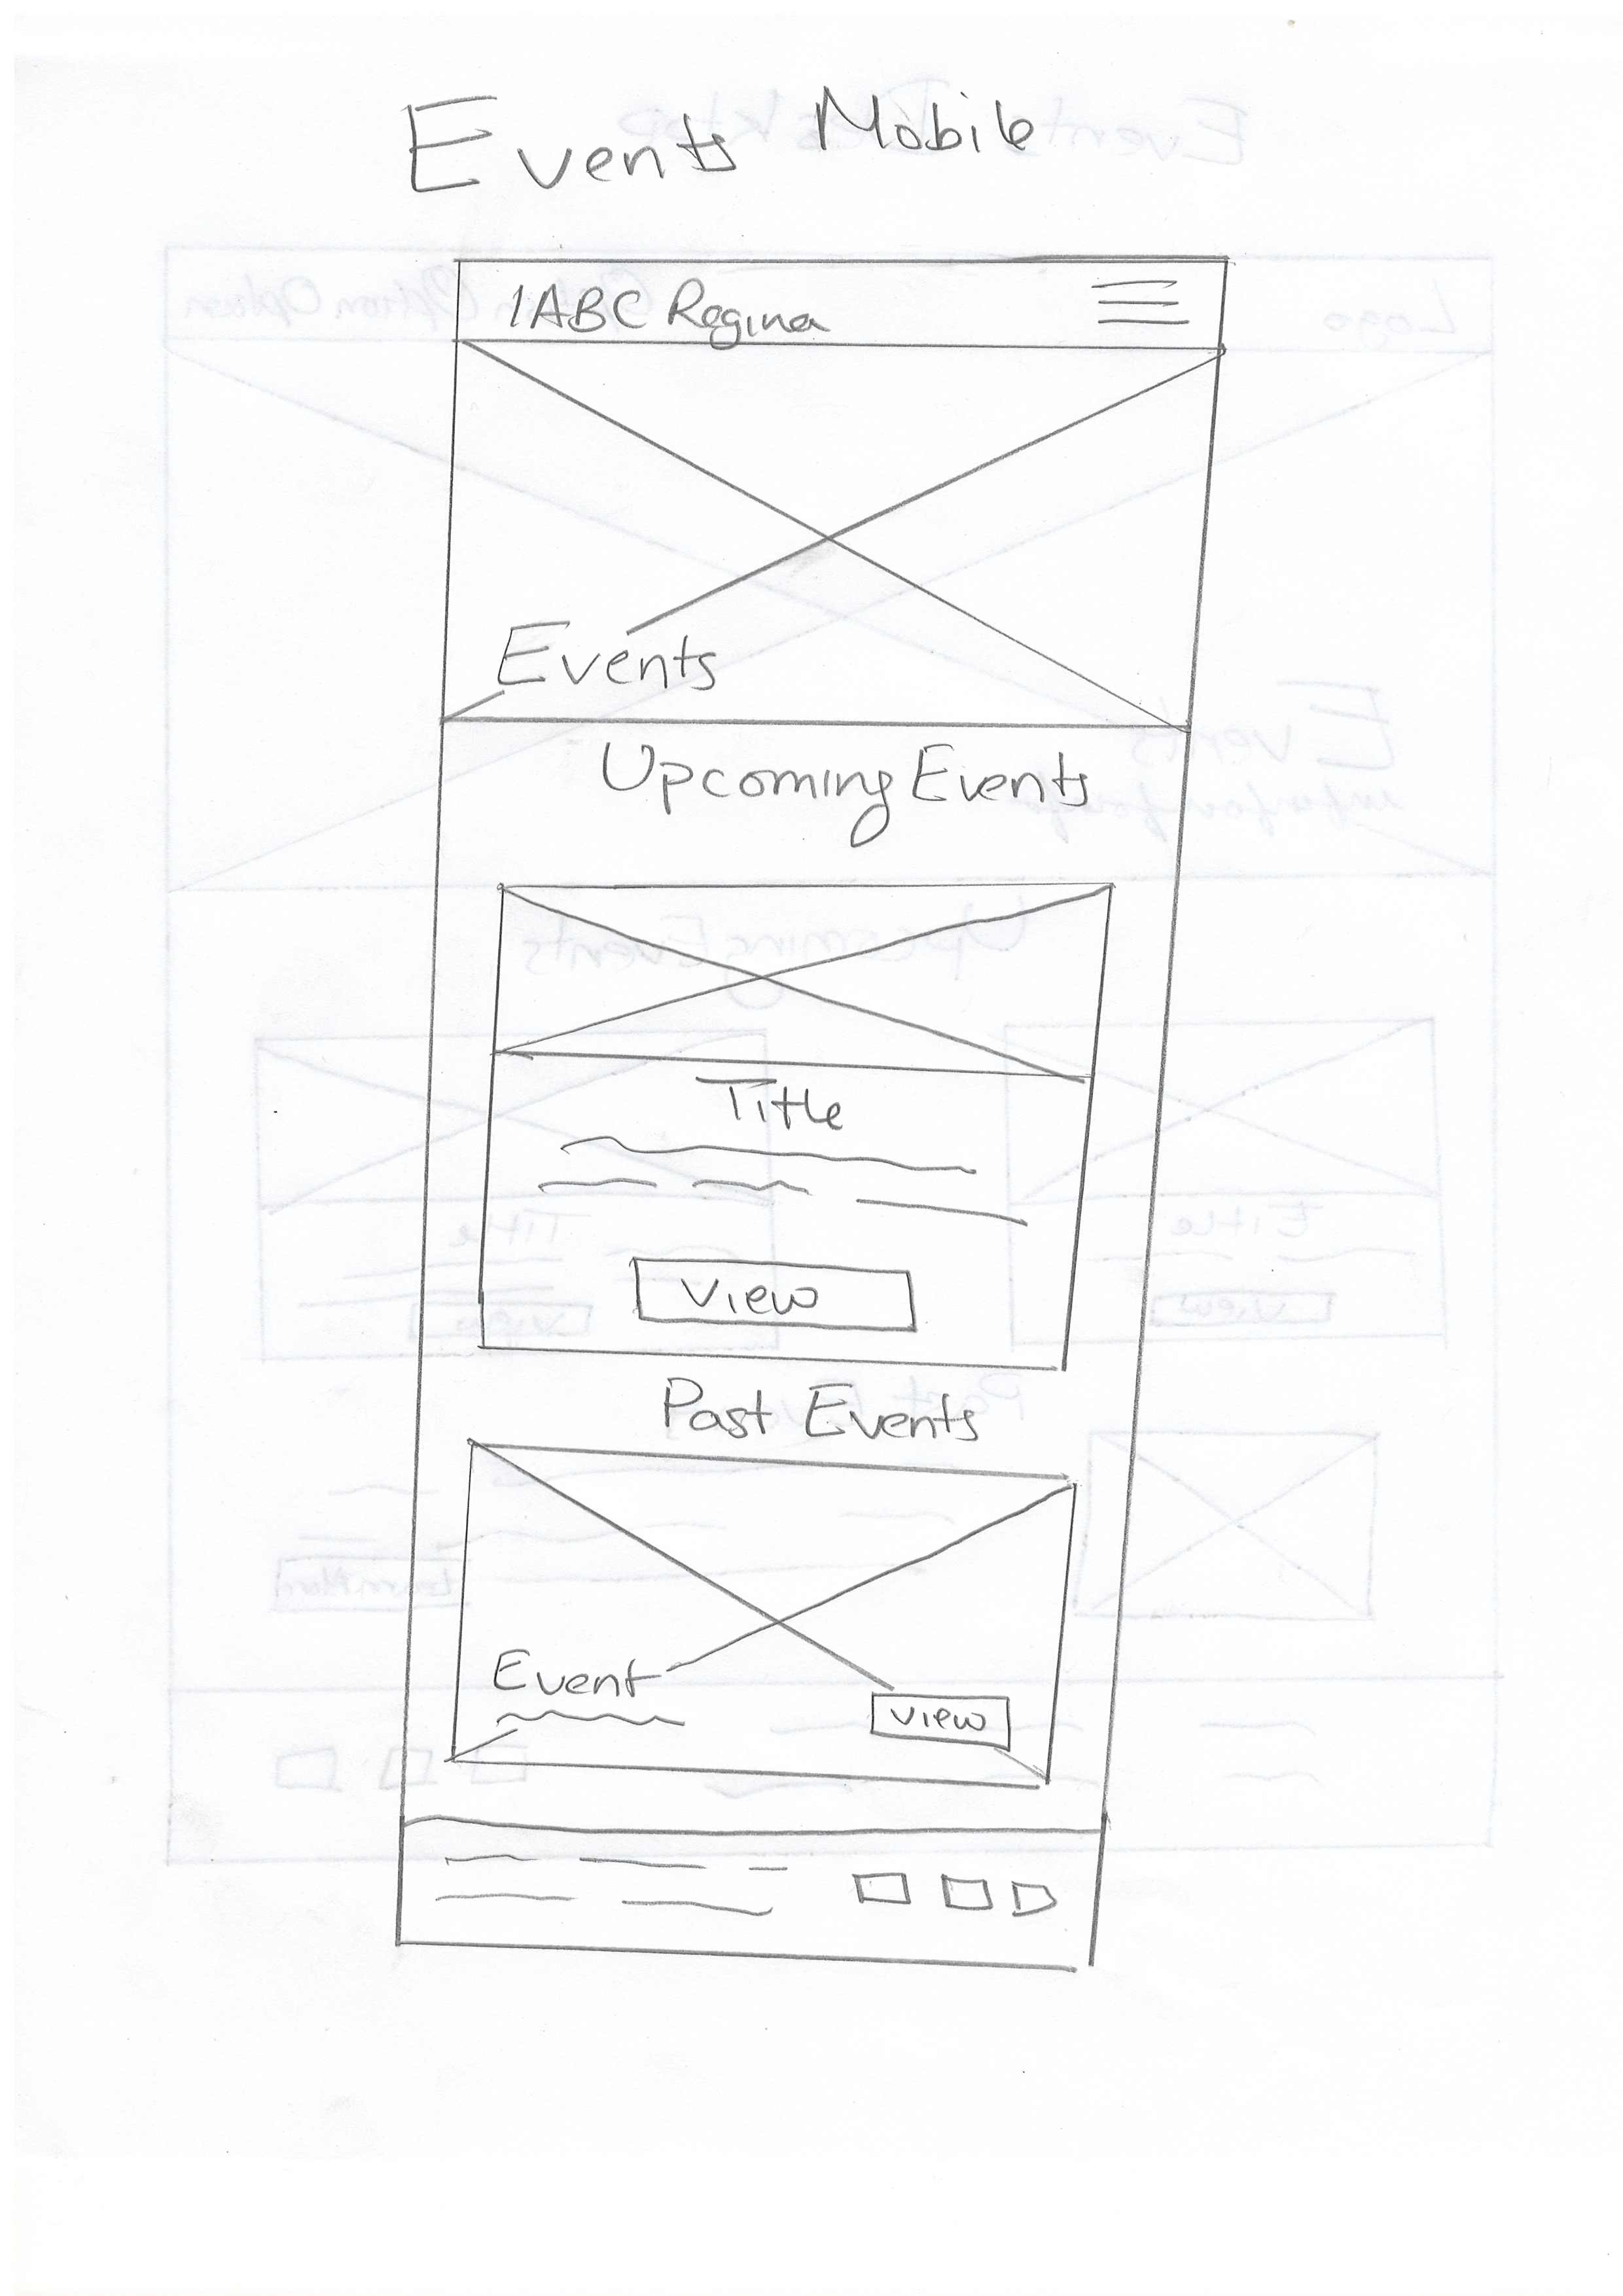 Events Mobile
IABC Regina
Events
Upcoming Events
Title
View
Past Events
Event
View